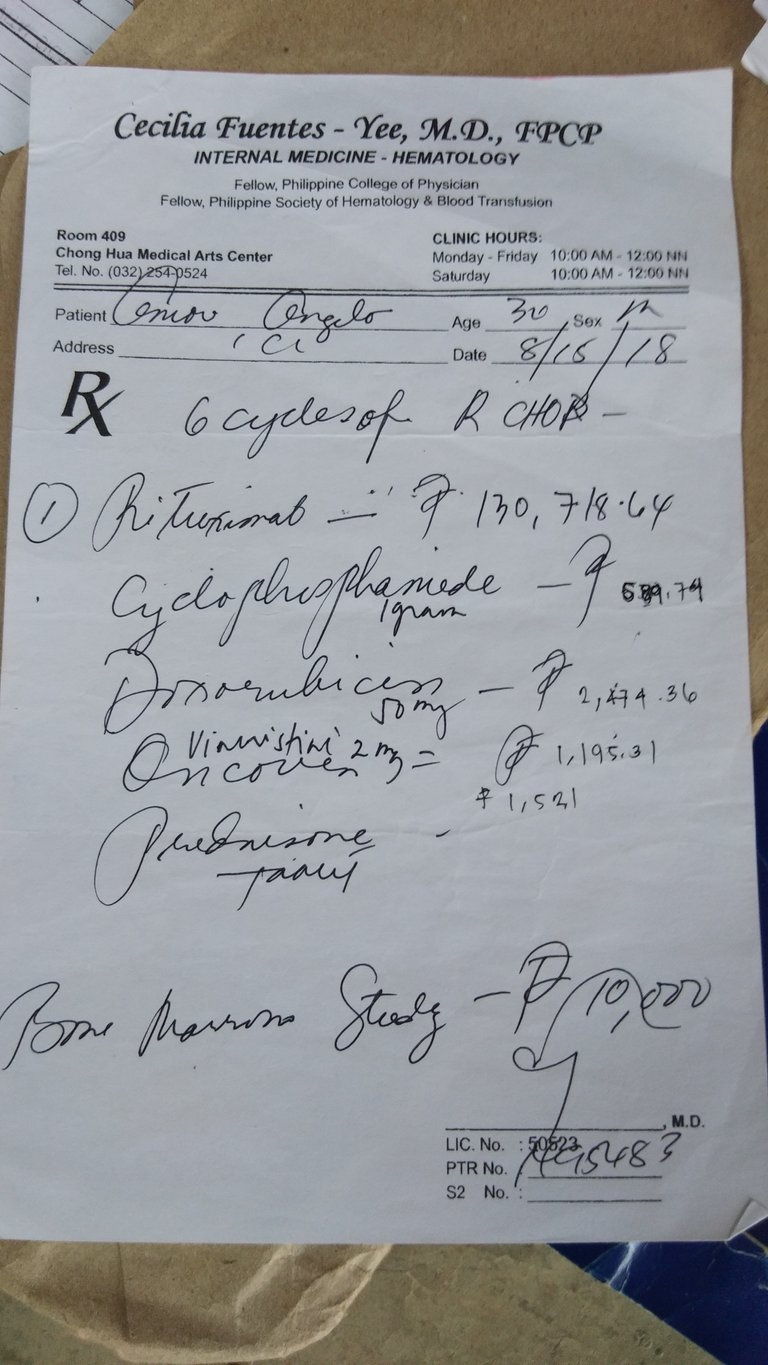 Cecilia Fuentes - Yee, M.D., FPCP
INTERNAL MEDICINE - HEMATOLOGY
Fellow, Philippine College of Physician
Fellow, Philippine Society of Hematology & Blood Transfusion
Room 409
Chong Hua Medical Arts Center
Tel. No. (032) 254-0524
CLINIC HOURS:
Monday - Friday 10:00 AM - 12:00 NN
Saturday 10:00 AM - 12:00 NN
Patient Angelo Age 30 Sex M
Address Date 8/15/18
Rx 6 cycles of R CHOP -
① Rituximab - ₱ 130,718.64
Cyclophosphamide - ₱
1gram
Doxorubicin - ₱ 2,474.36
50mg
Vincristine 2mg
Oncoven = ₱ 1,195.31
₱ 1,521
Prednisone -
Bone Marrow Study - ₱ 10,000
, M.D.
LIC. No. : 50523
PTR No. :
S2 No. :